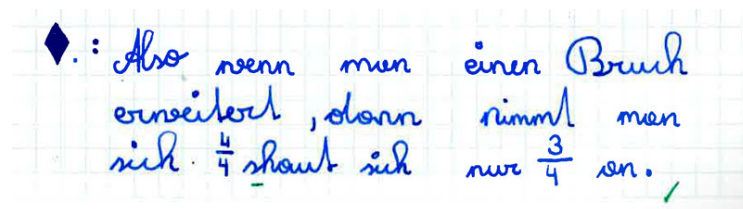 ♦.: Also wenn man einen Bruch
erweitert, dann nimmt man
sich. 4/4 shaut sich nur 3/4 an.